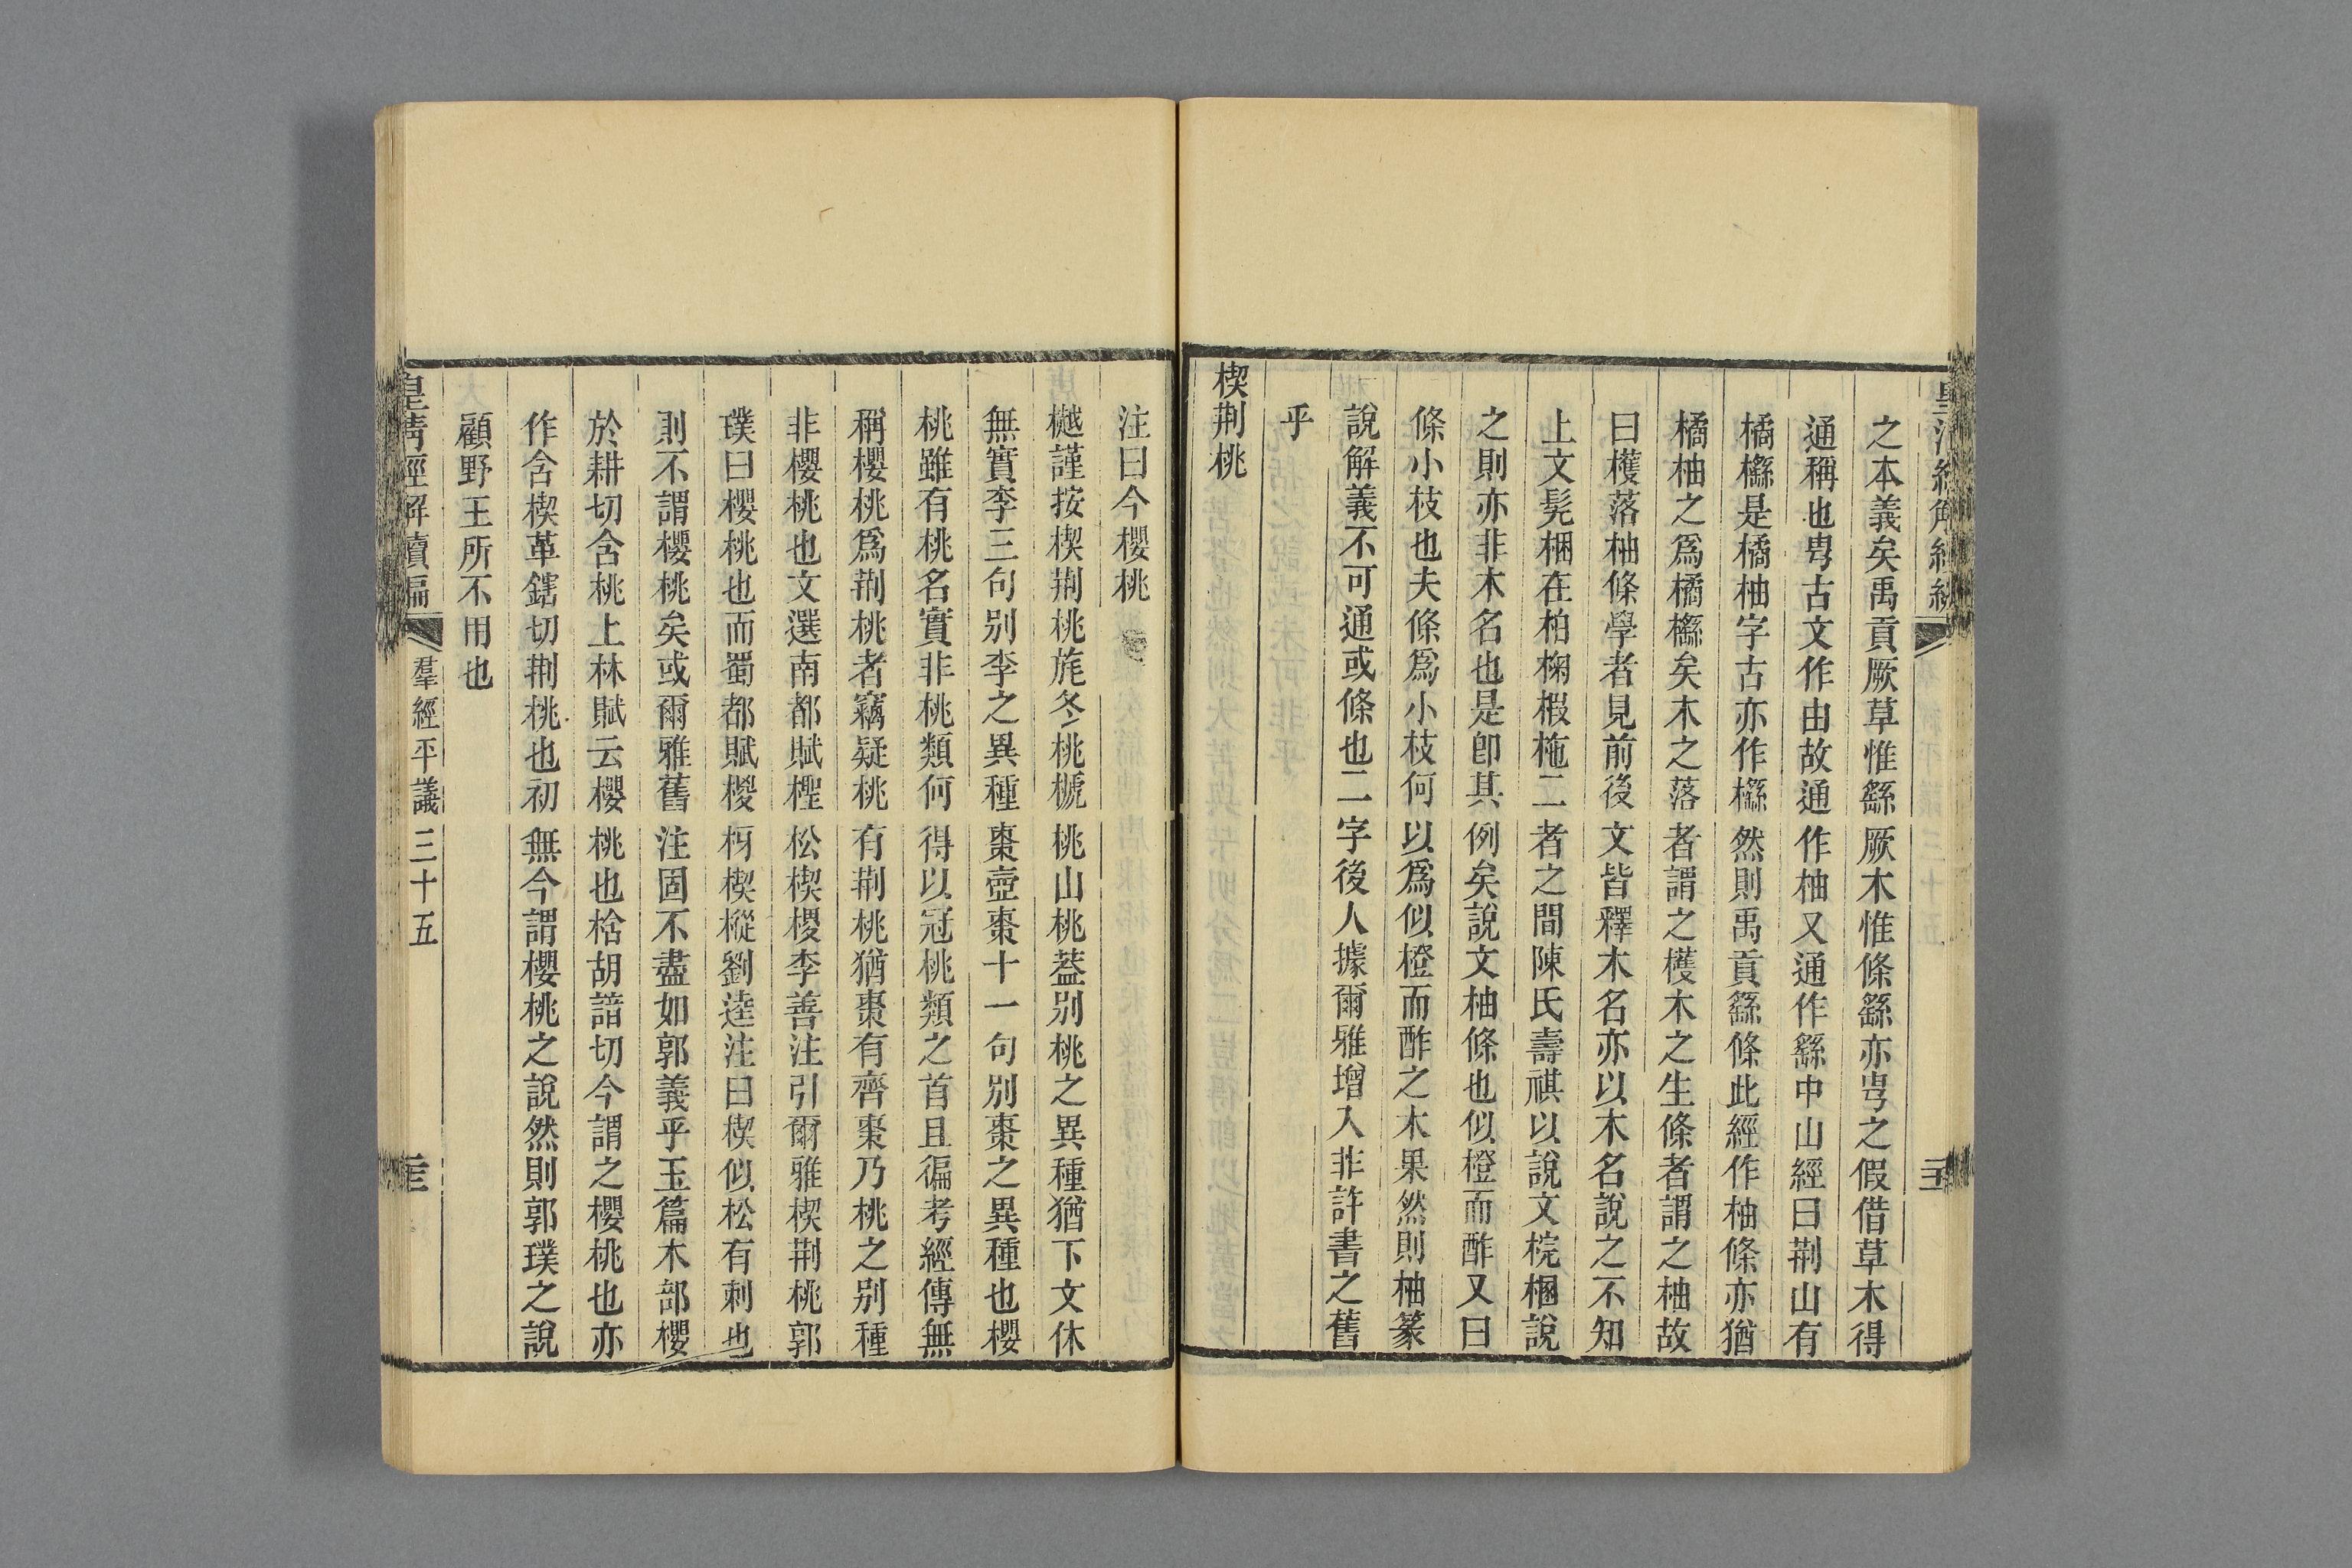 之本義矣禹貢厥草惟繇厥木惟條繇亦甹之假借草木得
通稱也甹古文作由故通作柚又通作繇中山經曰荆山有
橘櫾是橘柚字古亦作櫾然則禹貢繇條此經作柚條亦猶
橘柚之爲橘櫾矣木之落者謂之檴木之生條者謂之柚故
曰檴落柚條學者見前後文皆釋木名亦以木名說之不知
上文髡梱在柏椈椵柂二者之間陳氏壽祺以說文梡梱說
之則亦非木名也是卽其例矣說文柚條也似橙而酢又曰
條小枝也夫條爲小枝何以爲似橙而酢之木果然則柚篆
說解義不可通或條也二字後人據爾雅增入非許書之舊
乎
楔荆桃
注曰今櫻桃
樾謹按楔荆桃旄冬桃榹桃山桃葢别桃之異種猶下文休
無實李三句别李之異種棗壺棗十一句别棗之異種也櫻
桃雖有桃名實非桃類何得以冠桃類之首且徧考經傳無
稱櫻桃爲荆桃者竊疑桃有荆桃猶棗有齊棗乃桃之别種
非櫻桃也文選南都賦檉松楔㮨李善注引爾雅楔荆桃郭
璞曰櫻桃也而蜀都賦㮨枒楔樅劉逵注曰楔似松有刺也
則不謂櫻桃矣或爾雅舊注固不盡如郭義乎玉篇木部櫻
於耕切含桃上林賦云櫻桃也梒胡諳切今謂之櫻桃也亦
作含楔革鎋切荆桃也初無今謂櫻桃之說然則郭璞之說
顧野王所不用也
皇清經解續編
羣經平議三十五